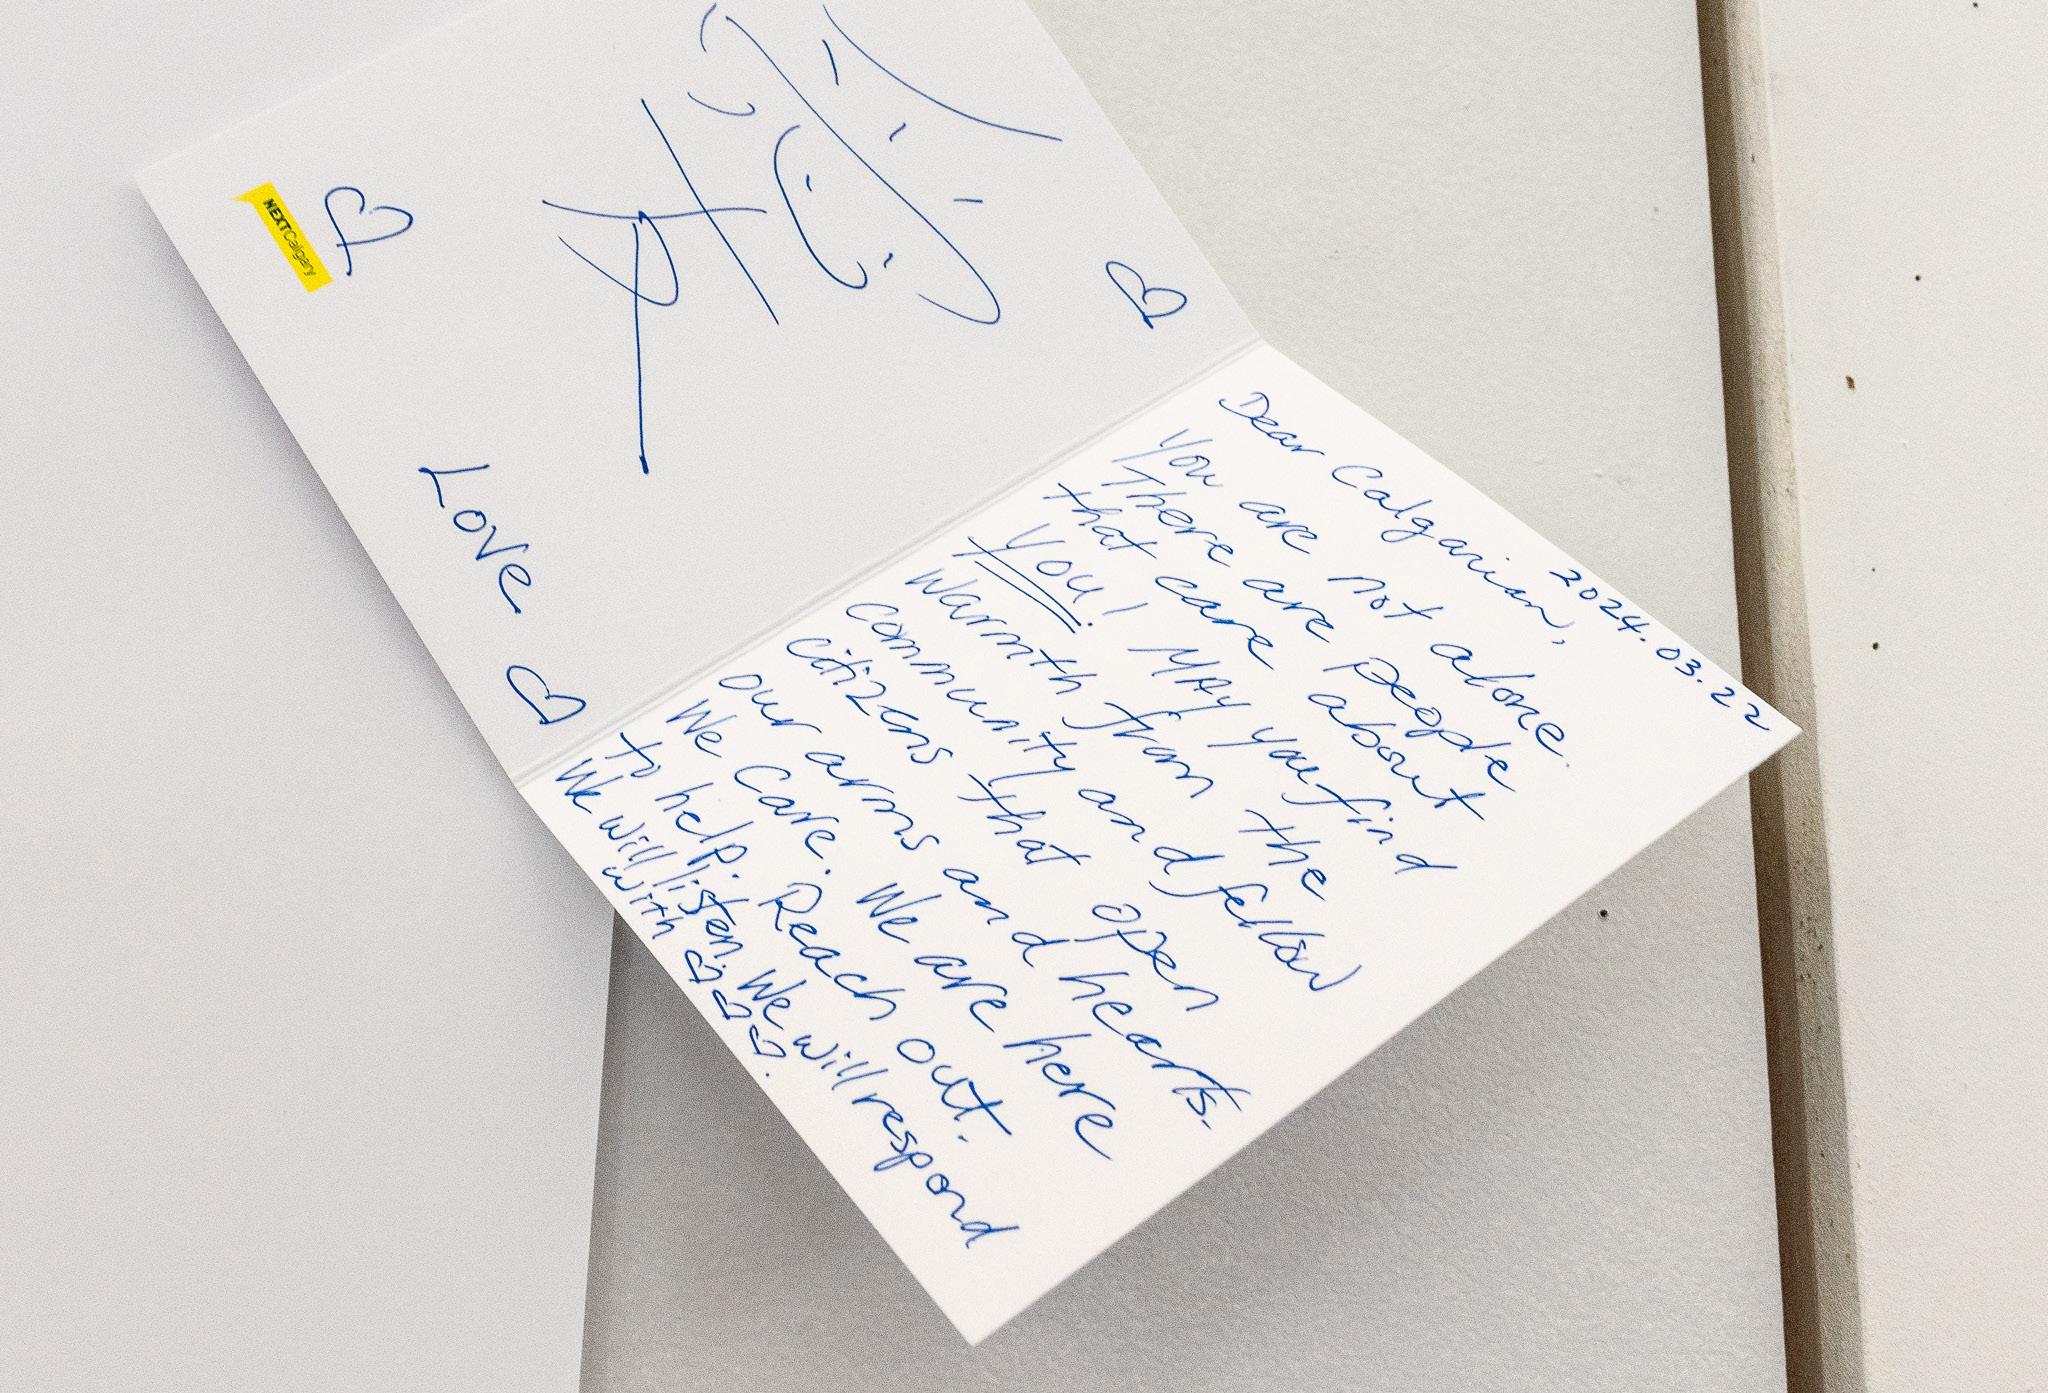 2024.03.22
Dear Calgarian,
You are not alone.
There are people
that care about
You! MAy you find
warmth from the
community and fellow
citizens that open
our arms and hearts.
We care. We are here
to help. Reach out.
We will listen. We will respond
with ♡♡♡.
Love
NEXTCalgary